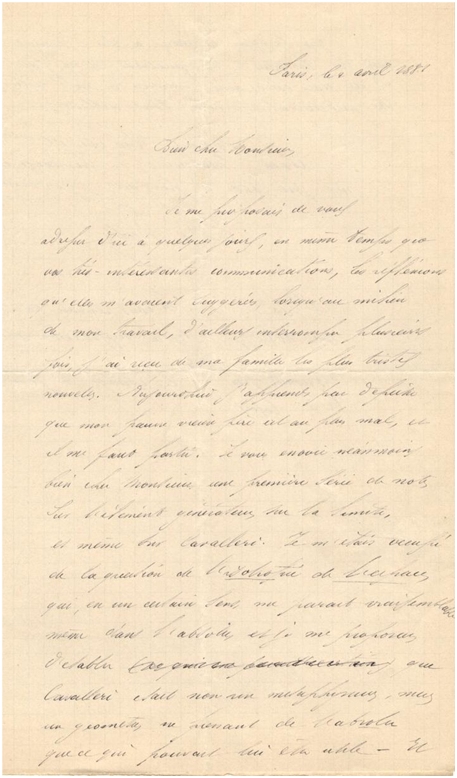 Paris, le 2 avril 1881
Bien cher Monsieur,
Je me proposais de vous
adresser d'ici à quelques jours, en même temps que
vos très-intéressantes communications, les réflexions
qu'elles m'avaient suggérées, lorsqu'au milieu
de mon travail, d'ailleurs interrompu plusieurs
fois, j'ai reçu de ma famille les plus tristes
nouvelles. Aujourd'hui j'apprends par dépêche
que mon pauvre vieux père est au plus mal, et
il me faut partir. Je vous envoie néanmoins,
bien cher Monsieur, une première série de notes
sur l'élément générateur, sur la limite,
et même sur Cavalleri. Je m'étais occupé
de la question de l'isotropie de l'espace,
qui, en un certain sens me paraît vraisemblable
même dans l'absolu, et je me proposais
d'établir que
Cavalleri était non un métaphysicien, mais
un géomètre ne prenant de l'absolu
que ce qui pouvait lui être utile — Et